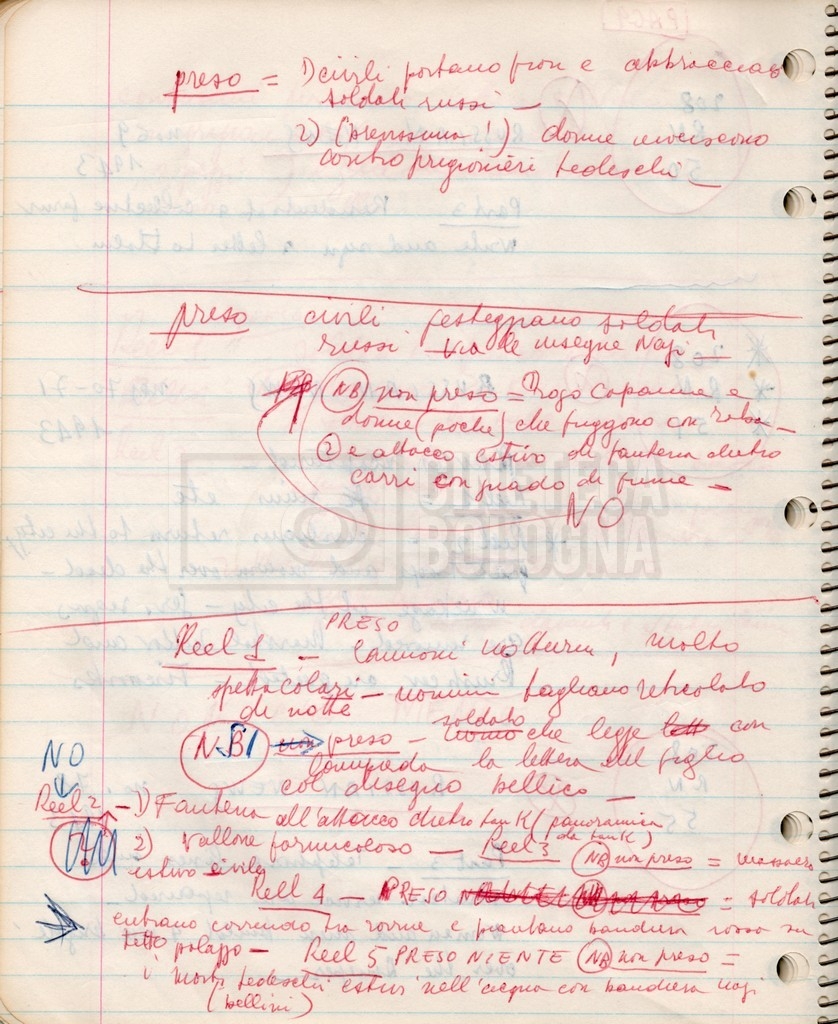 preso = 1) civili portano fiori e abbracciano
soldati russi —
2) (brevissima!) donne inveiscono
contro prigionieri tedeschi —
preso civili festeggiano soldati
russi — via le insegne Nazi —
NB non preso = Rogo capanne e
donne (poche) che fuggono con roba —
② e attacco estivo di fanteria dietro
carri con guado di fiume —
NO
PRESO
Reel 1 — cannoni notturni, molto
spettacolari — uomini tagliano reticolato
di notte
NB! preso — soldato che legge con
la lettera del figlio
col disegno bellico —
NO
Reel 2 — 1) Fanteria all'attacco dietro tank (panoramica
da tank)
2) vallone — Reel 3 NB non preso = massacro
estivo civile
Reel 4 — PRESO = soldati
entrano correndo tra rovine e piantano bandiera rossa su
tetto palazzo — Reel 5 PRESO NIENTE NB non preso =
i morti tedeschi estivi nell'acqua con bandiera nazi
(bellini)
CINETECA
BOLOGNA